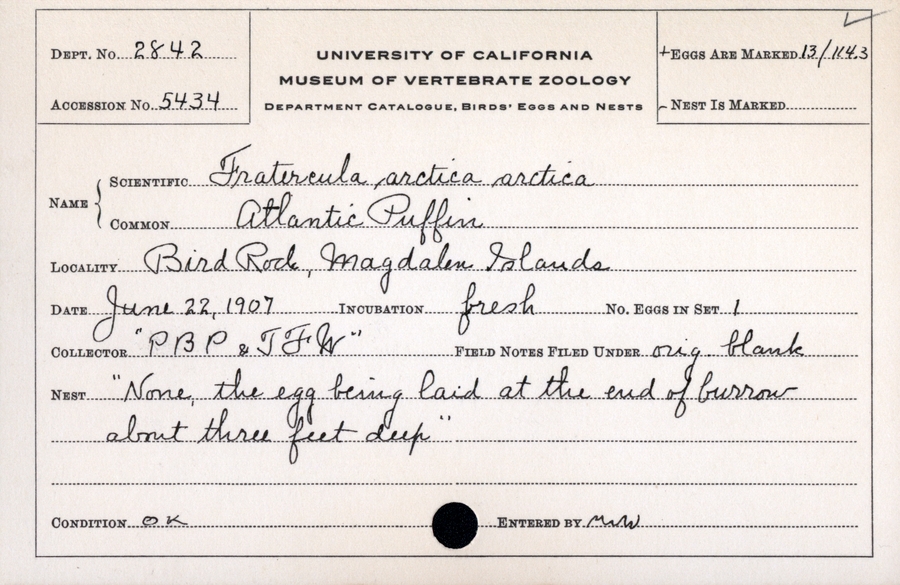 Dept. No. 2842
Accession No. 5434
UNIVERSITY OF CALIFORNIA
MUSEUM OF VERTEBRATE ZOOLOGY
Department Catalogue, Birds' Eggs and Nests
+Eggs Are Marked 13/114.3
Nest Is Marked
Name { Scientific Fratercula arctica arctica
Common Atlantic Puffin
Locality Bird Rock, Magdalen Islands
Date June 22, 1907 Incubation fresh No. Eggs in Set 1
Collector "P B P & T F W" Field Notes Filed Under orig. blank
Nest "None, the egg being laid at the end of burrow
about three feet deep"
Condition OK Entered by